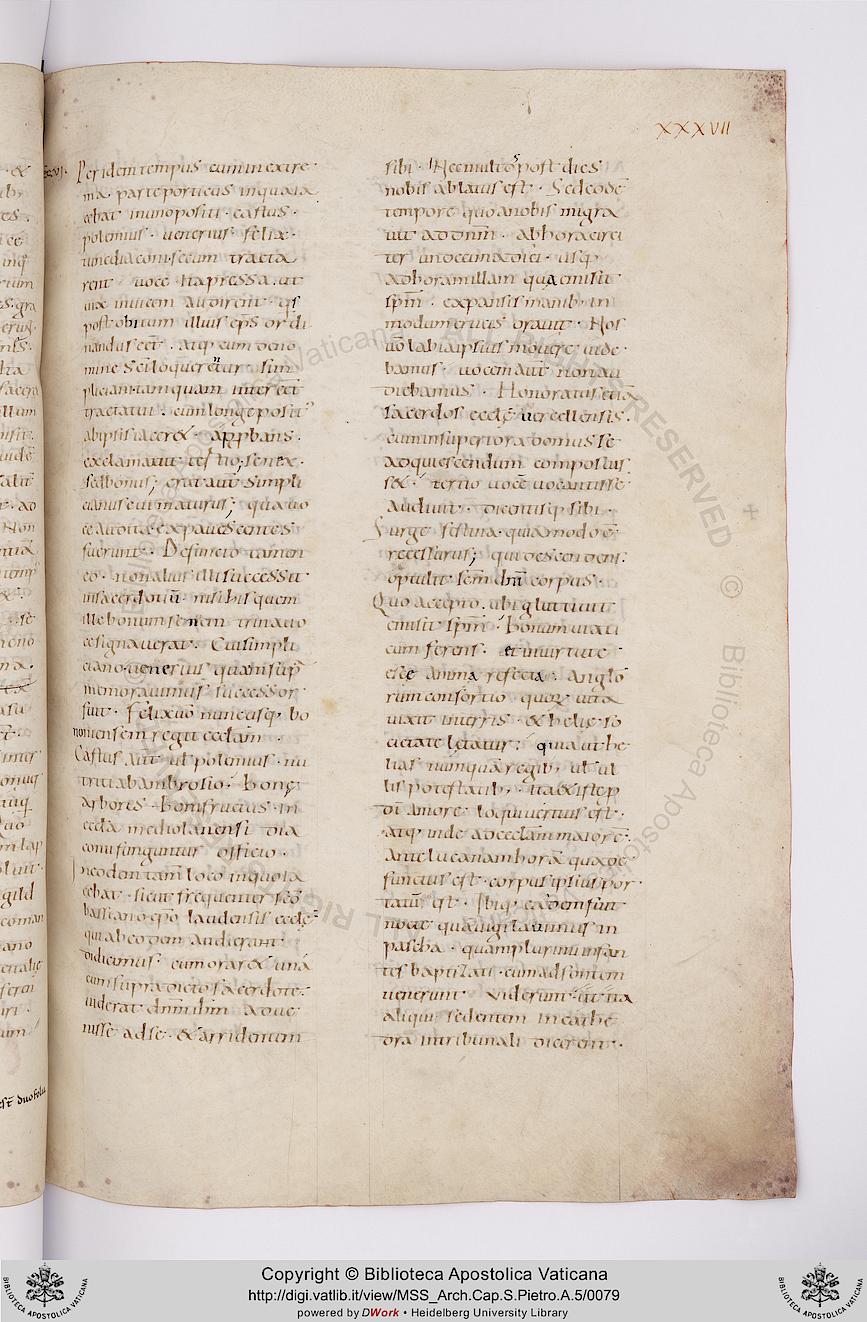 XXXVII
Per idem tempus cum in extre·
ma· parte porticus in qua ia
cebat in uno positi· castus·
polemius· uenerius felix·
tunc diaconi· secum tracta
rent uoce ita pressa· ut
uix inuicem audirent· q̄s
post obitum illius ep̄s ordi
nandus eēt· atq; cum de no
mine sc̄i loqueretur sim
pliciani· tamquam interēēt
tractatui· cum longe posit
ab ipsis iaceret· approbans·
exclamauit tertio; senex·
sed bonus; erat aut̄ simpli
cianus eui maturus; qua uo
ce audita expauescentes
fuerunt· Defuncto tamen
eo· non alius illi successit
in sacerdotiū· nisi his quem
ille bonum senem trina uo
ce signauerat· Cui simpli
ciano uenerius quem sup̄
memorauimus successor
fuit· felix uō nunc usq; bo
noniensem regit ecclam̄·
Castus aut̄ ul polemius· nu
triti ab ambrosio· bonę
arboris· boni fructus· in
eccla mediolanensi dia
conii funguntur officio·
In eodem tam̄ loco in quo ia
cebat· sicut frequenter sc̄o
bassiano ep̄o laudensis ecclę
qui ab eodem audierant
didicimus· cum oraret una
cum supradicto sacerdote·
uiderat dn̄m ihm̄ adue
nisse ad se· & arridentem
sibi· Nec multos post dies
nobis ablatus est· Sed eodē
tempore quo a nobis migra
uit ad dn̄m· ab hora circi
ter undecima diei· usq;
ad horam illam qua emisit
spm̄· expansis manib; in
modum crucis orauit· Nos
uō labia ipsius mouere uide
bamus· uocem aut̄ non au
diebamus· Honoratus etiā
sacerdos ecclę uercellensis·
cum in superiora domus se
ad quiescendum composuis
set· tertio uocē uocantis se
audiuit· dicentisq; sibi·
Surge festina· quia modo ē
recessurus; qui descendens·
optulit sc̄m dn̄i corpus·
Quo accepto· ubi gluttiuit
emisit spm̄· bonum uiati
cum ferens· et in uirtute
escę anima refecta· anglo
rum consortio quor; uita
uixit in terris· & helię so
cietate lętatur; quia ut he
lias numquā regib; ul ul
lis potestatib; ita & iste p̄
di amore loqui ueritus est·
atq; inde ad ecclam̄ maiorē·
ante lucanam horā qua de
functus est· corpus ipsius por
tatū est· Ibiq; eadem fuit
nocte qua uigilauimus in
pascha· quam plurimi infan
tes baptizati· cum ad fontem
uenerunt uiderunt· ut ita
aliqui sedentem in cathe
dra in tribunali dicerent·
Copyright © Biblioteca Apostolica Vaticana
http://digi.vatlib.it/view/MSS_Arch.Cap.S.Pietro.A.5/0079
powered by DWork • Heidelberg University Library